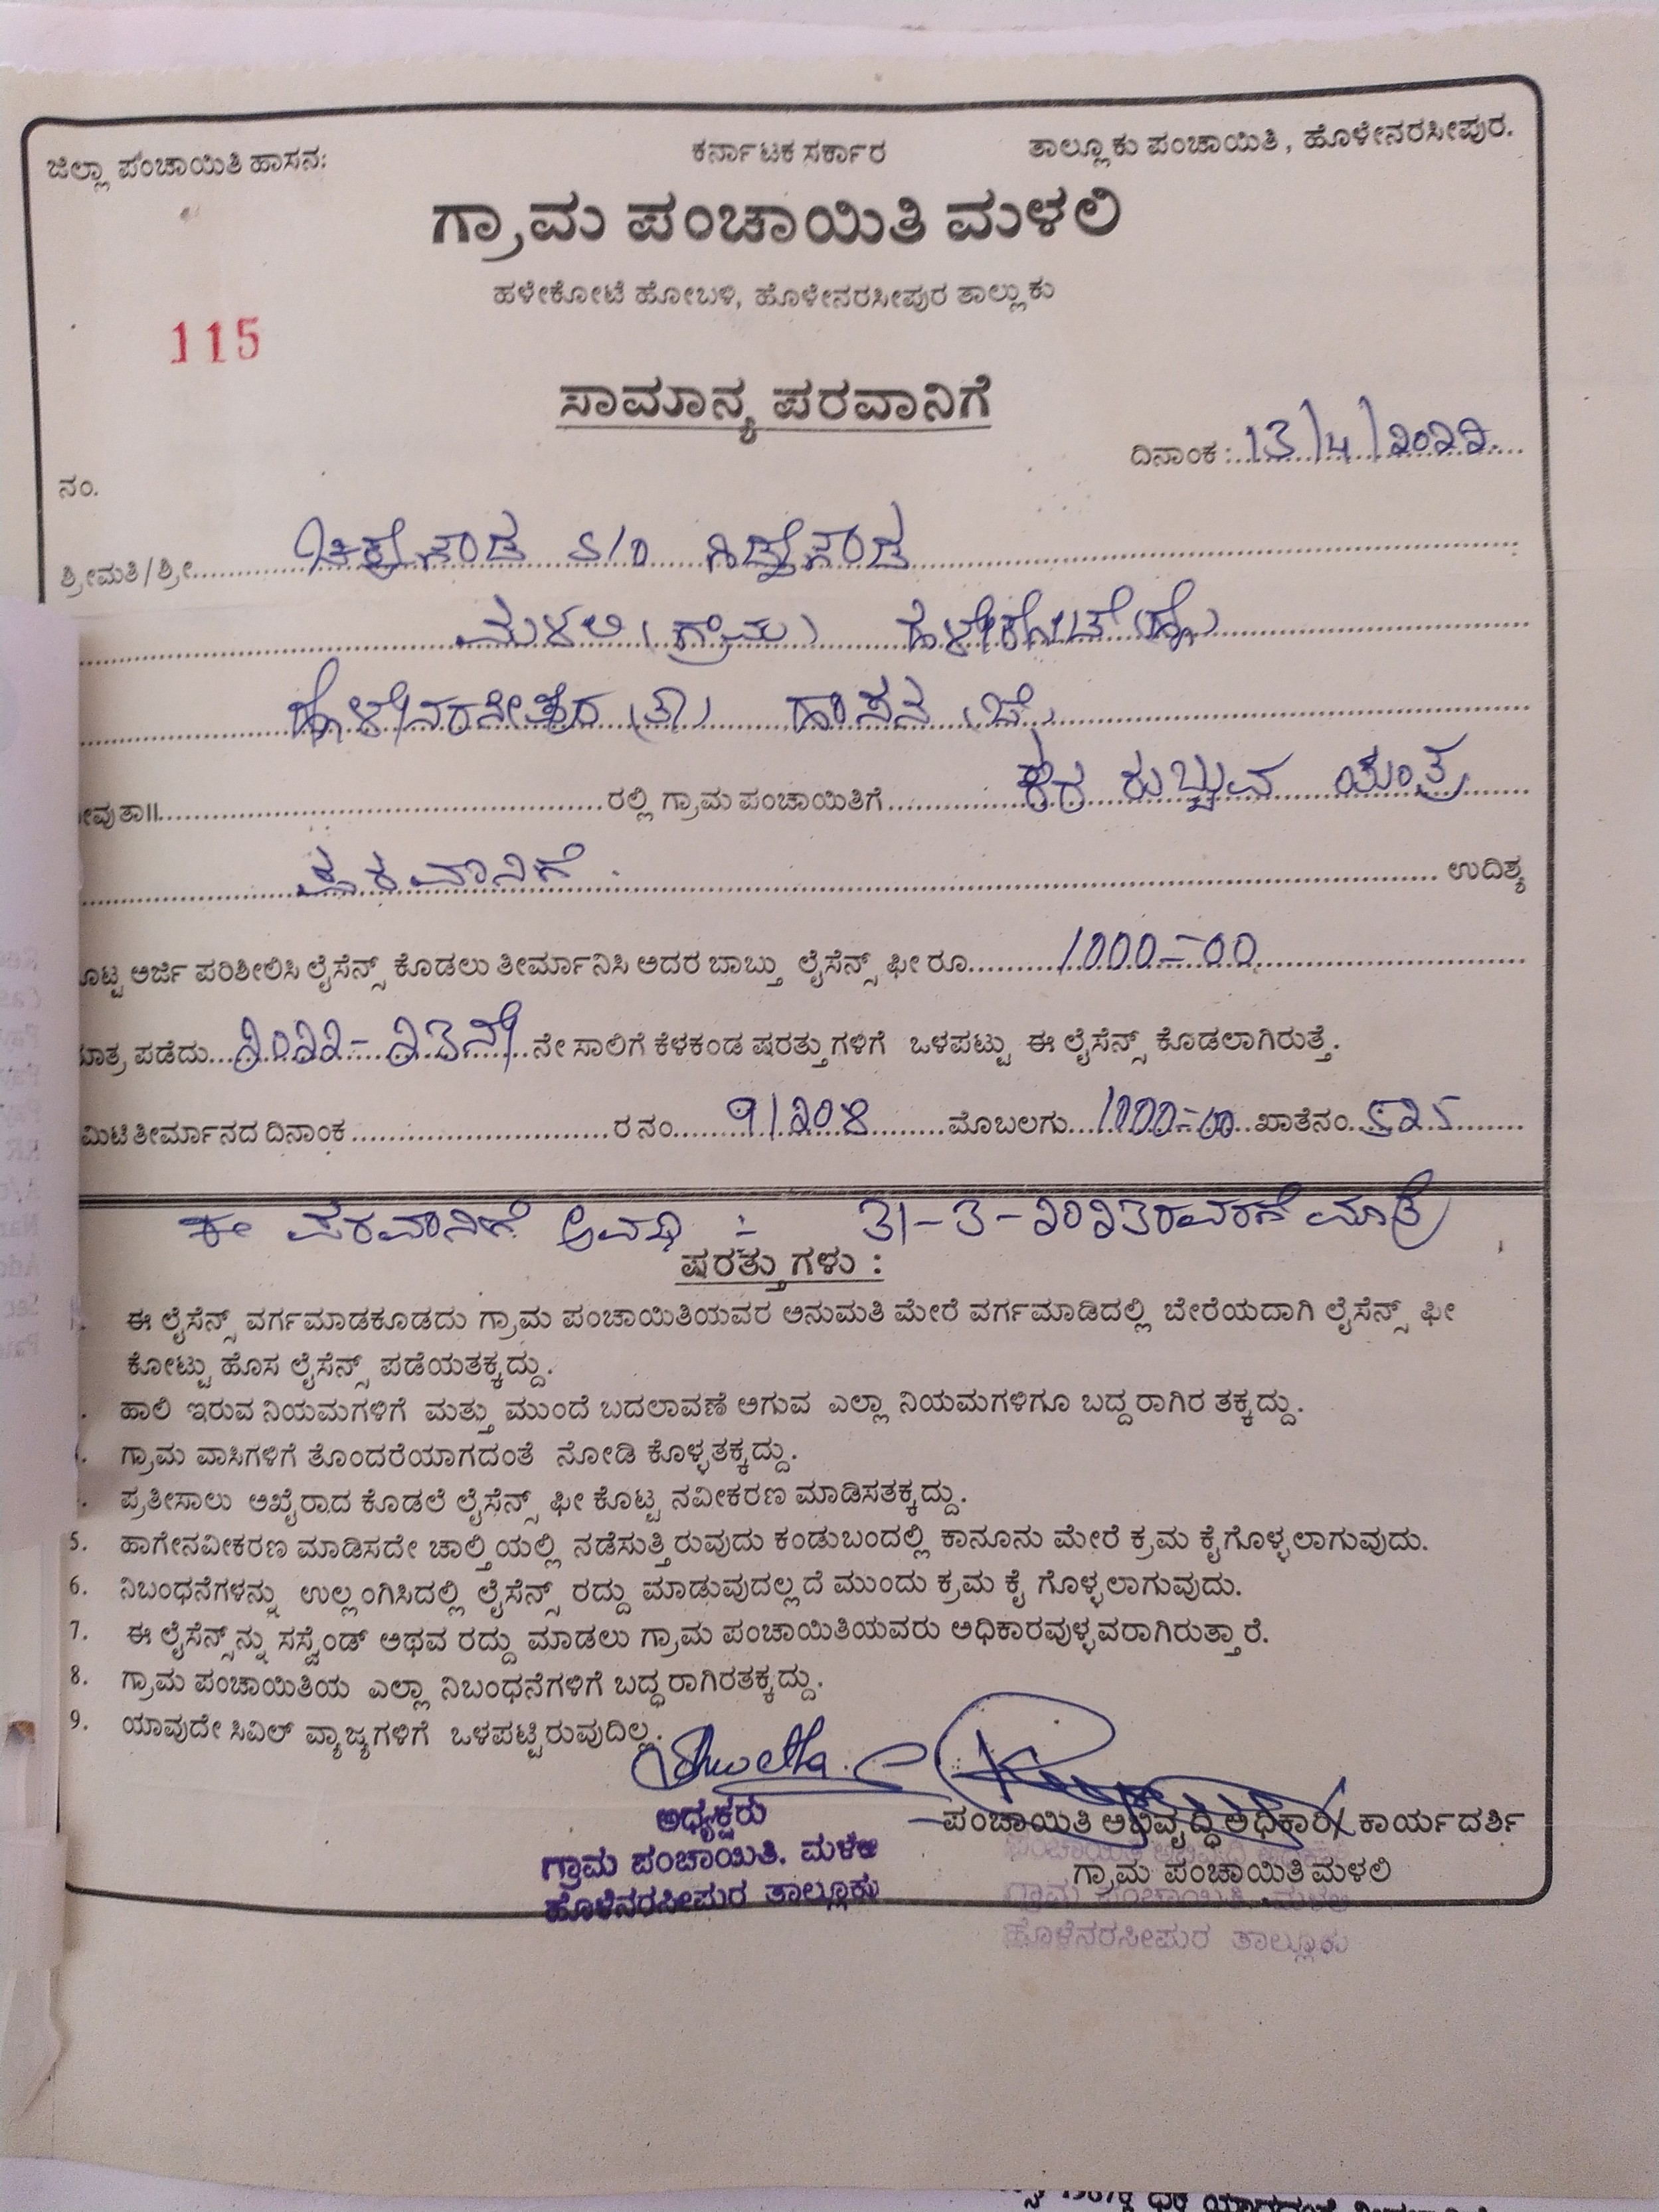 ಜಿಲ್ಲಾ ಪಂಚಾಯಿತಿ ಹಾಸನ: ಕರ್ನಾಟಕ ಸರ್ಕಾರ ತಾಲ್ಲೂಕು ಪಂಚಾಯಿತಿ, ಹೊಳೇನರಸೀಪುರ.
ಗ್ರಾಮ ಪಂಚಾಯಿತಿ ಮಳಲಿ
ಹಳೇಕೋಟೆ ಹೋಬಳಿ, ಹೊಳೇನರಸೀಪುರ ತಾಲ್ಲುಕು
115
ಸಾಮಾನ್ಯ ಪರವಾನಿಗೆ
ದಿನಾಂಕ : 13/4/೨೦೨೨
ನಂ.
ಶ್ರೀಮತಿ/ಶ್ರೀ S/o
ಮಳಲಿ (ಗ್ರಾಮ) ಹಳೇಕೋಟೆ (ಹೋ)
ಹೊಳೇನರಸೀಪುರ (ತಾ) ಹಾಸನ (ಜಿ)
ೀವುತಾ॥ ರಲ್ಲಿ ಗ್ರಾಮ ಪಂಚಾಯಿತಿಗೆ ರುಬ್ಬುವ ಯಂತ್ರ
ಪರವಾನಿಗೆ ಉದಿಶ್ಯ
ೂಟ್ಟ ಅರ್ಜಿ ಪರಿಶೀಲಿಸಿ ಲೈಸೆನ್ಸ್ ಕೊಡಲು ತೀರ್ಮಾನಿಸಿ ಅದರ ಬಾಬ್ತು ಲೈಸೆನ್ಸ್ ಫೀ ರೂ 1000=00
ಮಾತ್ರ ಪಡೆದು ೨೦೨೨-೨3ನೇ ನೇ ಸಾಲಿಗೆ ಕೆಳಕಂಡ ಷರತ್ತುಗಳಿಗೆ ಒಳಪಟ್ಟು ಈ ಲೈಸೆನ್ಸ್ ಕೊಡಲಾಗಿರುತ್ತೆ.
ಮಿಟಿ ತೀರ್ಮಾನದ ದಿನಾಂಕ ರ ನಂ 9/೨೦೪ ಮೊಬಲಗು 1000=00 ಖಾತೆನಂ ೨5
ಈ ಪರವಾನಿಗೆ ಅವಧಿ :- 31-3-೨೦೨3ರವರಗೆ ಮಾತ್ರ
ಷರತ್ತುಗಳು :
ಈ ಲೈಸೆನ್ಸ್ ವರ್ಗಮಾಡಕೂಡದು ಗ್ರಾಮ ಪಂಚಾಯಿತಿಯವರ ಅನುಮತಿ ಮೇರೆ ವರ್ಗಮಾಡಿದಲ್ಲಿ ಬೇರೆಯದಾಗಿ ಲೈಸೆನ್ಸ್ ಫೀ
ಕೋಟ್ಟು ಹೊಸ ಲೈಸೆನ್ಸ್ ಪಡೆಯತಕ್ಕದ್ದು.
ಹಾಲಿ ಇರುವ ನಿಯಮಗಳಿಗೆ ಮತ್ತು ಮುಂದೆ ಬದಲಾವಣೆ ಆಗುವ ಎಲ್ಲಾ ನಿಯಮಗಳಿಗೂ ಬದ್ದರಾಗಿರ ತಕ್ಕದ್ದು.
ಗ್ರಾಮ ವಾಸಿಗಳಿಗೆ ತೊಂದರೆಯಾಗದಂತೆ ನೋಡಿ ಕೊಳ್ಳತಕ್ಕದ್ದು.
ಪ್ರತೀಸಾಲು ಅಖೈರಾದ ಕೊಡಲೆ ಲೈಸೆನ್ಸ್ ಫೀ ಕೊಟ್ಟ ನವೀಕರಣ ಮಾಡಿಸತಕ್ಕದ್ದು.
5. ಹಾಗೇನವೀಕರಣ ಮಾಡಿಸದೇ ಚಾಲ್ತಿಯಲ್ಲಿ ನಡೆಸುತ್ತಿರುವುದು ಕಂಡುಬಂದಲ್ಲಿ ಕಾನೂನು ಮೇರೆ ಕ್ರಮ ಕೈಗೊಳ್ಳಲಾಗುವುದು.
6. ನಿಬಂಧನೆಗಳನ್ನು ಉಲ್ಲಂಗಿಸಿದಲ್ಲಿ ಲೈಸೆನ್ಸ್ ರದ್ದು ಮಾಡುವುದಲ್ಲದೆ ಮುಂದು ಕ್ರಮ ಕೈ ಗೊಳ್ಳಲಾಗುವುದು.
7. ಈ ಲೈಸೆನ್ಸ್‌ನ್ನು ಸಸ್ಪೆಂಡ್ ಅಥವ ರದ್ದು ಮಾಡಲು ಗ್ರಾಮ ಪಂಚಾಯಿತಿಯವರು ಅಧಿಕಾರವುಳ್ಳವರಾಗಿರುತ್ತಾರೆ.
8. ಗ್ರಾಮ ಪಂಚಾಯಿತಿಯ ಎಲ್ಲಾ ನಿಬಂಧನೆಗಳಿಗೆ ಬದ್ಧರಾಗಿರತಕ್ಕದ್ದು.
9. ಯಾವುದೇ ಸಿವಿಲ್ ವ್ಯಾಜ್ಯಗಳಿಗೆ ಒಳಪಟ್ಟಿರುವುದಿಲ್ಲ.
Shwetha.
ಅಧ್ಯಕ್ಷರು
ಗ್ರಾಮ ಪಂಚಾಯಿತಿ. ಮಳಲಿ
ಹೊಳೆನರಸೀಪುರ ತಾಲ್ಲೂಕು
ಪಂಚಾಯಿತಿ ಅಭಿವೃದ್ಧಿ ಅಧಿಕಾರಿ/ ಕಾರ್ಯದರ್ಶಿ
ಗ್ರಾಮ ಪಂಚಾಯಿತಿ ಮಳಲಿ
ಗ್ರಾಮ ಪಂಚಾಯಿತಿ. ಮಳಲಿ
ಹೊಳೆನರಸೀಪುರ ತಾಲ್ಲೂಕು